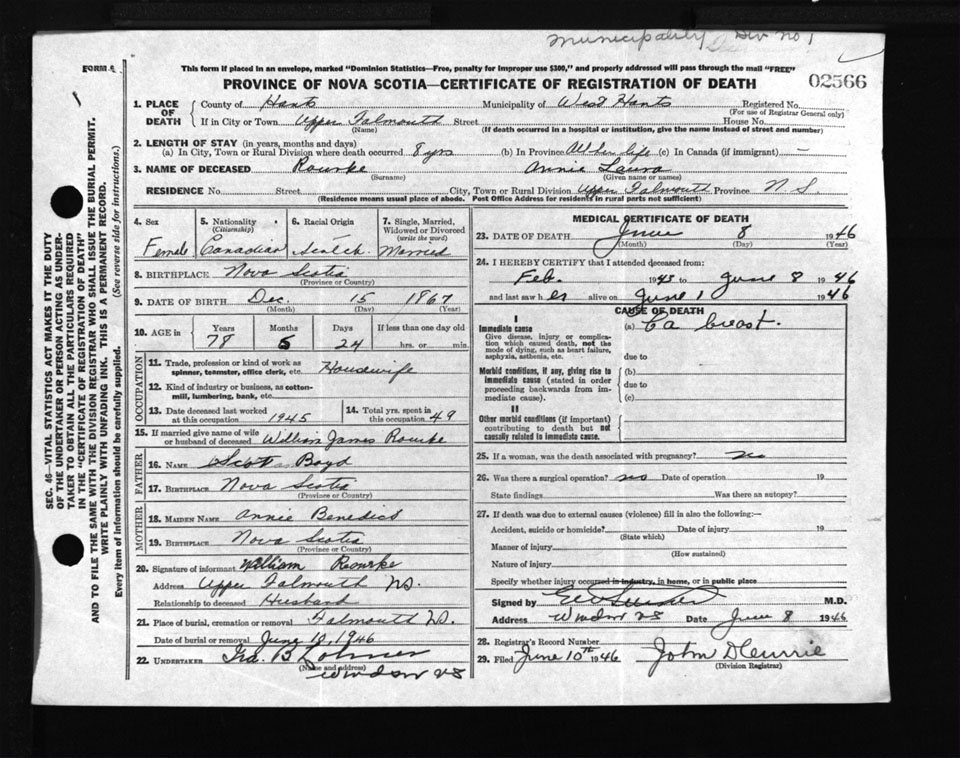 Municipality Div No 1
FORM
This form if placed in an envelope, marked "Dominion Statistics—Free, penalty for improper use $300," and properly addressed will pass through the mail "FREE"
PROVINCE OF NOVA SCOTIA—CERTIFICATE OF REGISTRATION OF DEATH
02566
1. PLACE OF DEATH
County of Hants Municipality of West Hants Registered No.
(For use of Registrar General only)
If in City or Town Upper Falmouth Street House No.
(Name) (If death occurred in a hospital or institution, give the name instead of street and number)
2. LENGTH OF STAY (in years, months and days)
(a) In City, Town or Rural Division where death occurred 8 yrs (b) In Province All her life (c) In Canada (if immigrant) —
3. NAME OF DECEASED Rourke Annie Laura
(Surname) (Given name or names)
RESIDENCE No. Street City, Town or Rural Division Upper Falmouth Province N. S.
(Residence means usual place of abode. Post Office Address for residents in rural parts not sufficient)
4. Sex Female
5. Nationality (Citizenship) Canadian
6. Racial Origin Scotch
7. Single, Married, Widowed or Divorced (write the word) Married
8. BIRTHPLACE Nova Scotia
(Province or Country)
9. DATE OF BIRTH Dec. 15 1867
(Month) (Day) (Year)
10. AGE in Years Months Days If less than one day old
78 5 24 hrs. or min.
OCCUPATION
11. Trade, profession or kind of work as spinner, teamster, office clerk, etc. Housewife
12. Kind of industry or business, as cotton-mill, lumbering, bank, etc.
13. Date deceased last worked at this occupation 1945
14. Total yrs. spent in this occupation 49
15. If married give name of wife or husband of deceased William James Rourke
FATHER
16. NAME Scot Boyd
17. BIRTHPLACE Nova Scotia
(Province or Country)
MOTHER
18. MAIDEN NAME Annie Benedict
19. BIRTHPLACE Nova Scotia
(Province or Country)
20. Signature of informant William Rourke
Address Upper Falmouth NS.
Relationship to deceased Husband
21. Place of burial, cremation or removal Falmouth NS.
Date of burial or removal June 10, 1946
22. UNDERTAKER
(Name and address)
Windsor NS
MEDICAL CERTIFICATE OF DEATH
23. DATE OF DEATH June 8 1946
(Month) (Day) (Year)
24. I HEREBY CERTIFY that I attended deceased from:
Feb. 1945 to June 8 1946
and last saw her alive on June 1 1946
CAUSE OF DEATH
I
Immediate cause
Give disease, injury or complication which caused death, not the mode of dying, such as heart failure, asphyxia, asthenia, etc.
(a) Ca breast.
due to
Morbid conditions, if any, giving rise to immediate cause (stated in order proceeding backwards from immediate cause).
(b)
due to
(c)
II
Other morbid conditions (if important) contributing to death but not causally related to immediate cause.
25. If a woman, was the death associated with pregnancy? no
26. Was there a surgical operation? no Date of operation 19
State findings Was there an autopsy?
27. If death was due to external causes (violence) fill in also the following:—
Accident, suicide or homicide? Date of injury 19
(State which)
Manner of injury
(How sustained)
Nature of injury
Specify whether injury occurred in industry, in home, or in public place
Signed by M.D.
Address Windsor NS Date June 8 1946
28. Registrar's Record Number
29. Filed June 10th 1946 John D Currie
(Division Registrar)
SEC. 46—VITAL STATISTICS ACT MAKES IT THE DUTY
OF THE UNDERTAKER OR PERSON ACTING AS UNDER-
TAKER TO OBTAIN ALL THE PARTICULARS REQUIRED
IN THE "CERTIFICATE OF REGISTRATION OF DEATH"
AND TO FILE THE SAME WITH THE DIVISION REGISTRAR WHO SHALL ISSUE THE BURIAL PERMIT.
WRITE PLAINLY WITH UNFADING INK. THIS IS A PERMANENT RECORD.
Every item of information should be carefully supplied. (See reverse side for instructions.)